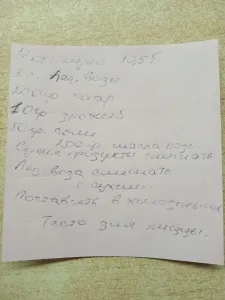 кг. муки 10,5%
2 л. Лед. вода
200гр сахар
10гр дрожжей
50гр. соли
200 гр. масла
Сухие продукты смешать
Лед вода смешать
с сухими
Поставить в холодильник
- Тесто для пиццы.